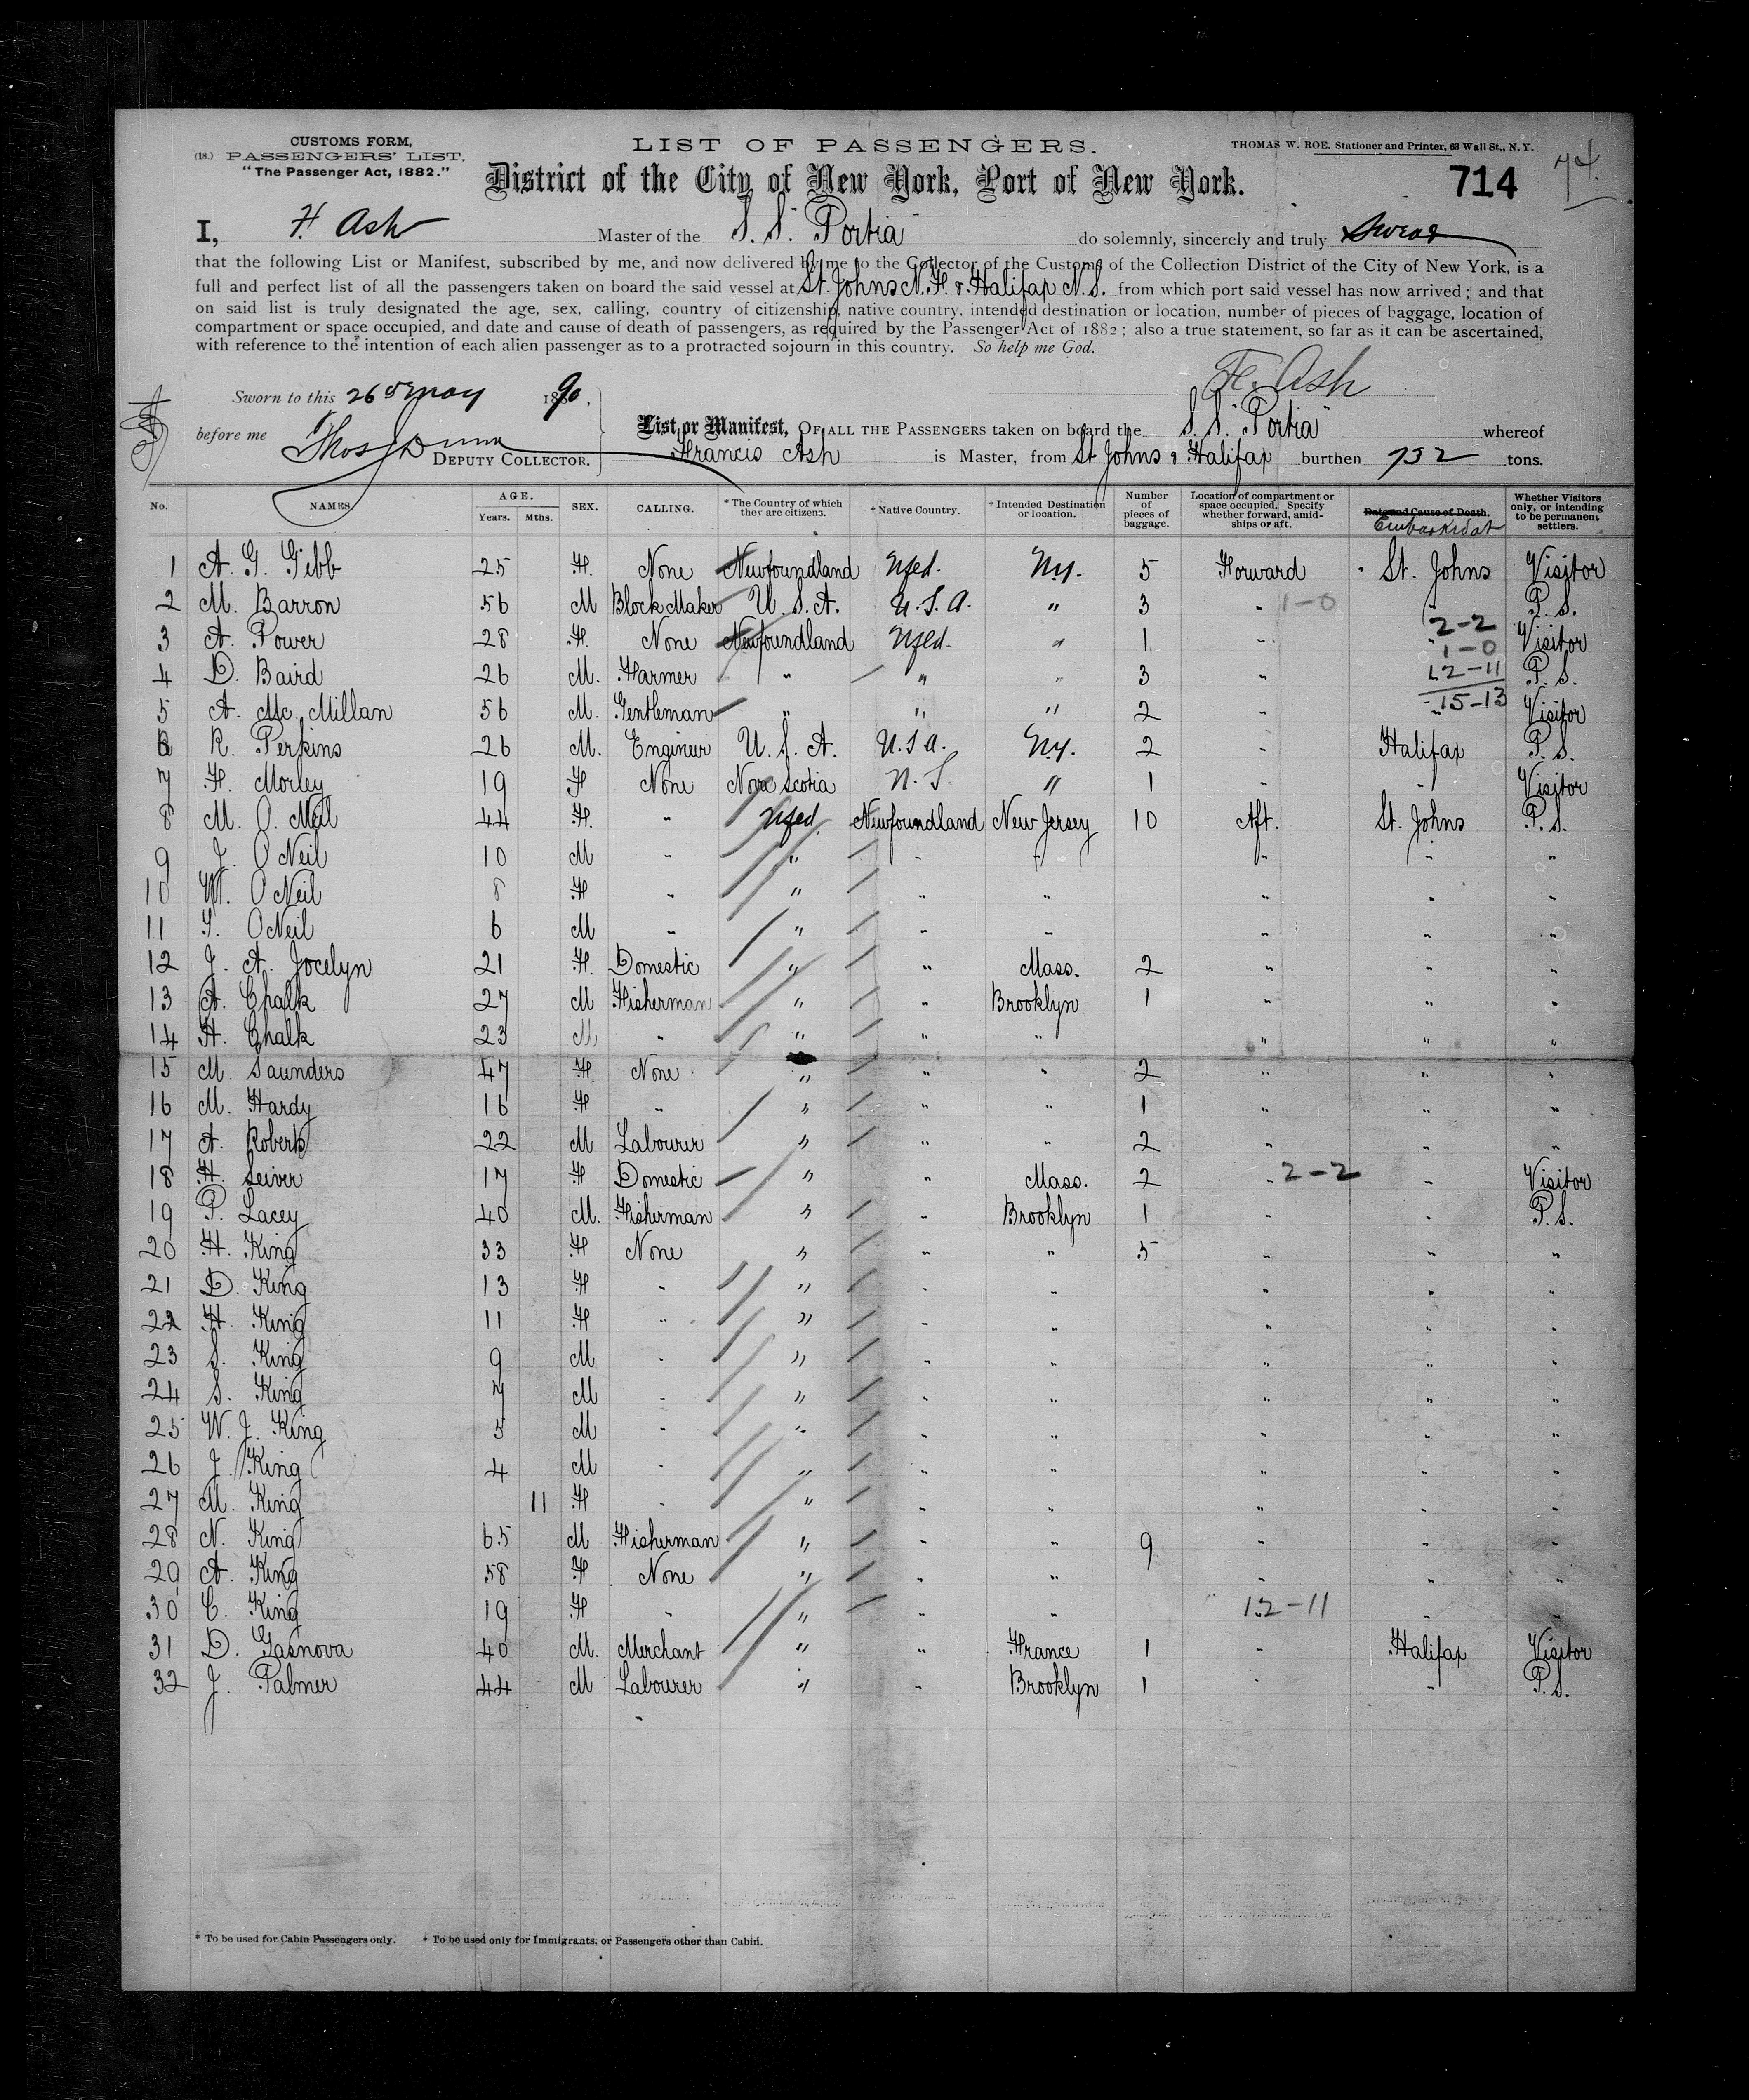 CUSTOMS FORM,
(18.) PASSENGERS' LIST.
"The Passenger Act, 1882."
LIST OF PASSENGERS.
THOMAS W. ROE. Stationer and Printer, 63 Wall St., N. Y.
District of the City of New York, Port of New York.
714 74.
I, F. Ash Master of the S. S. Portia do solemnly, sincerely and truly Swear
that the following List or Manifest, subscribed by me, and now delivered by me to the Collector of the Customs of the Collection District of the City of New York, is a
full and perfect list of all the passengers taken on board the said vessel at St. Johns N. F. & Halifax N. S. from which port said vessel has now arrived; and that
on said list is truly designated the age, sex, calling, country of citizenship, native country, intended destination or location, number of pieces of baggage, location of
compartment or space occupied, and date and cause of death of passengers, as required by the Passenger Act of 1882; also a true statement, so far as it can be ascertained,
with reference to the intention of each alien passenger as to a protracted sojourn in this country. So help me God.
F. Ash
Sworn to this 26 May 1890,
before me Thos J Dunn
DEPUTY COLLECTOR.
List or Manifest, OF ALL THE PASSENGERS taken on board the S. S. "Portia" whereof
Francis Ash is Master, from St Johns & Halifax burthen 732 tons.
No. NAMES. AGE. Years. Mths. SEX. CALLING. * The Country of which they are citizens. † Native Country. † Intended Destination or location. Number of pieces of baggage. Location of compartment or space occupied. Specify whether forward, amidships or aft. Date and Cause of Death. Embarked at Whether Visitors only, or intending to be permanent settlers.
1 A. G. Gibb 25 F. None Newfoundland Nfed. N.Y. 5 Forward St. Johns Visitor
2 M. Barron 56 M Block Maker U. S. A. U. S. A. " 3 " 1-0 " P. S.
2-2
3 A. Power 28 F. None Newfoundland Nfed. " 1 " " Visitor
1-0
4 D. Baird 26 M. Farmer " " " 3 " 12-11 P. S.
5 A. Mc Millan 56 M. Gentleman " " " 2 " " 15-13 Visitor
6 R. Perkins 26 M. Engineer U. S. A. U. S. A. N.Y. 2 " Halifax P. S.
7 F. Morley 19 F None Nova Scotia N. S. " 1 " " Visitor
8 M. O. Neil 44 F. " Nfed. Newfoundland New Jersey 10 Aft. St. Johns P. S.
9 J. O Neil 10 M " " " " " " "
10 M. O Neil 8 F " " " " " " "
11 T. O Neil 6 M " " " " " " "
12 J. A. Jocelyn 21 F. Domestic " " Mass. 2 " " "
13 A. Chalk 27 M Fisherman " " Brooklyn 1 " " "
14 H. Chalk 23 M " " " " " " "
15 M. Saunders 47 F None " " " 2 " " "
16 M. Hardy 16 F " " " " 1 " " "
17 A. Roberts 22 M Labourer " " " 2 " " "
18 H. Seiver 17 F Domestic " " Mass. 2 " 2-2 " Visitor
19 P. Lacey 40 M. Fisherman " " Brooklyn 1 " " P. S.
20 H. King 33 F None " " " 5 " " "
21 D. King 13 F " " " " " " "
22 H. King 11 F " " " " " " "
23 S. King 9 M " " " " " " "
24 S. King 7 M " " " " " " "
25 W. J. King 5 M " " " " " " "
26 J. King 4 M " " " " " " "
27 M. King 11 F " " " " " " "
28 N. King 65 M Fisherman " " " 9 " " "
29 A. King 58 F None " " " " " "
30 C. King 19 F " " " " 12-11 " "
31 D. Gasnova 40 M. Merchant " " France 1 " Halifax Visitor
32 J. Palmer 44 M Labourer " " Brooklyn 1 " " P. S.
* To be used for Cabin Passengers only. † To be used only for Immigrants, or Passengers other than Cabin.